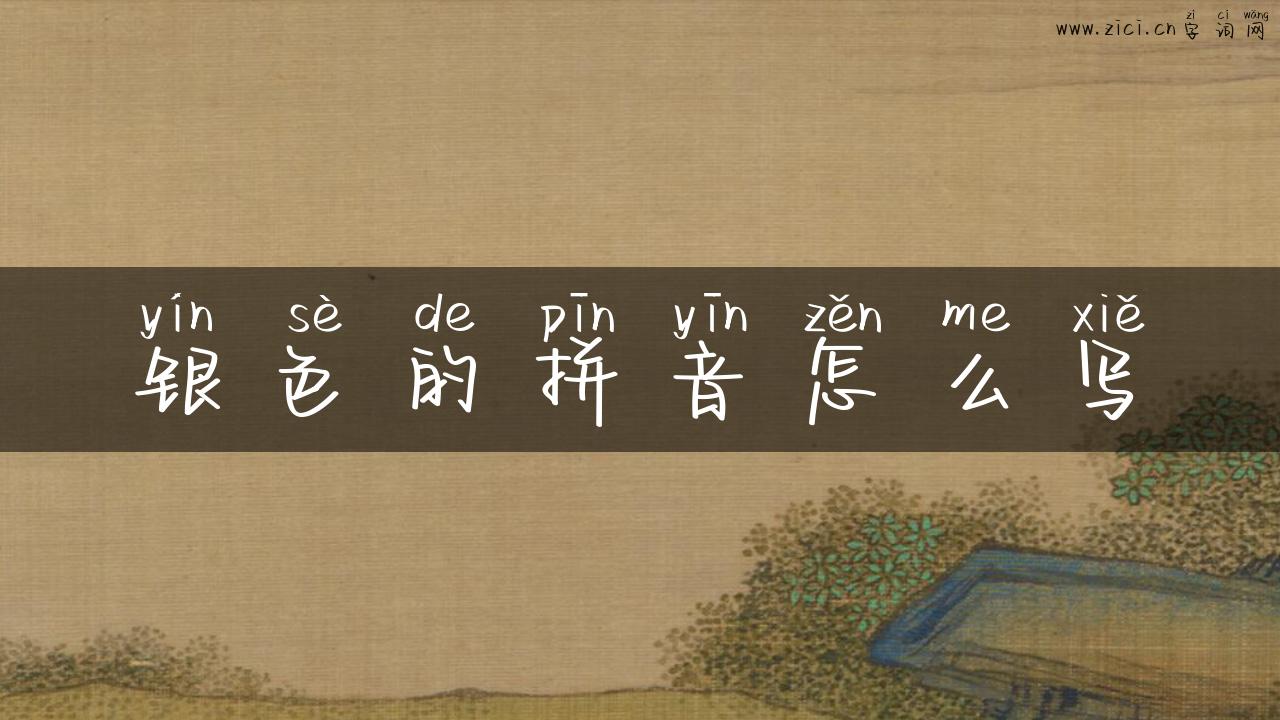 zì cí wǎng
www.zici.cn 字词网
yín sè de pīn yīn zěn me xiě
银色的拼音怎么写